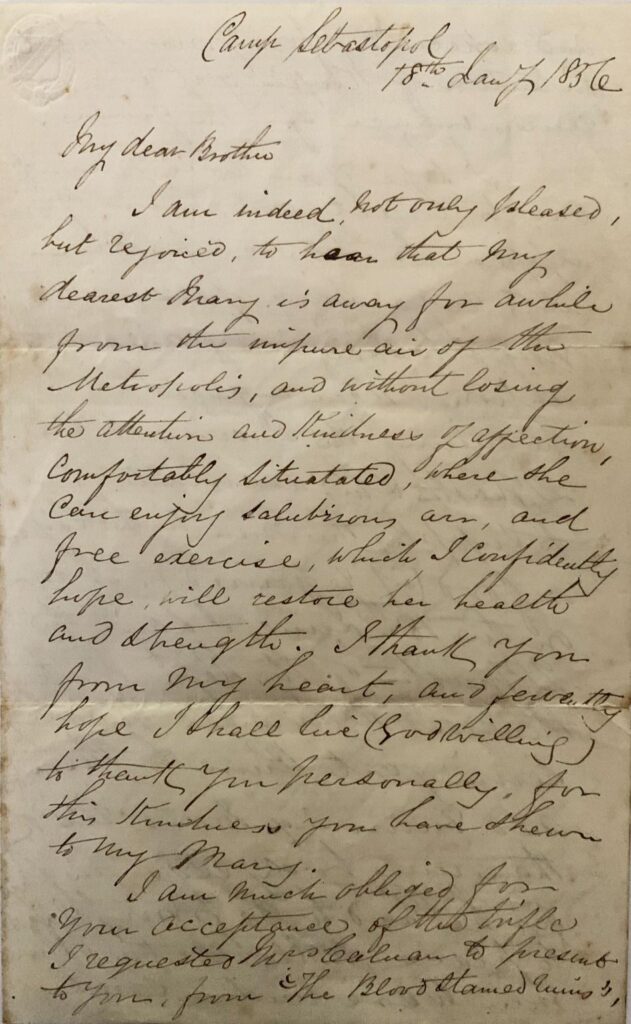 Camp Sebastopol
18th Jany 1856
My dear Brother
I am indeed, not only pleased,
but rejoiced, to hear that my
dearest Mary is away for awhile
from the impure air of the
Metropolis, and without losing
the attention and kindness of affection,
comfortably situatated, where she
can enjoy salubrious air, and
free exercise, which I confidently
hope, will restore her health
and strength. I thank you
from my heart, and fervently
hope I shall live (God willing)
to thank you personally, for
this kindness you have shewn
to my Mary.
I am much obliged for
your acceptance of the trifle
I requested Mrs to present
to you, from "The Blood stained ruins",